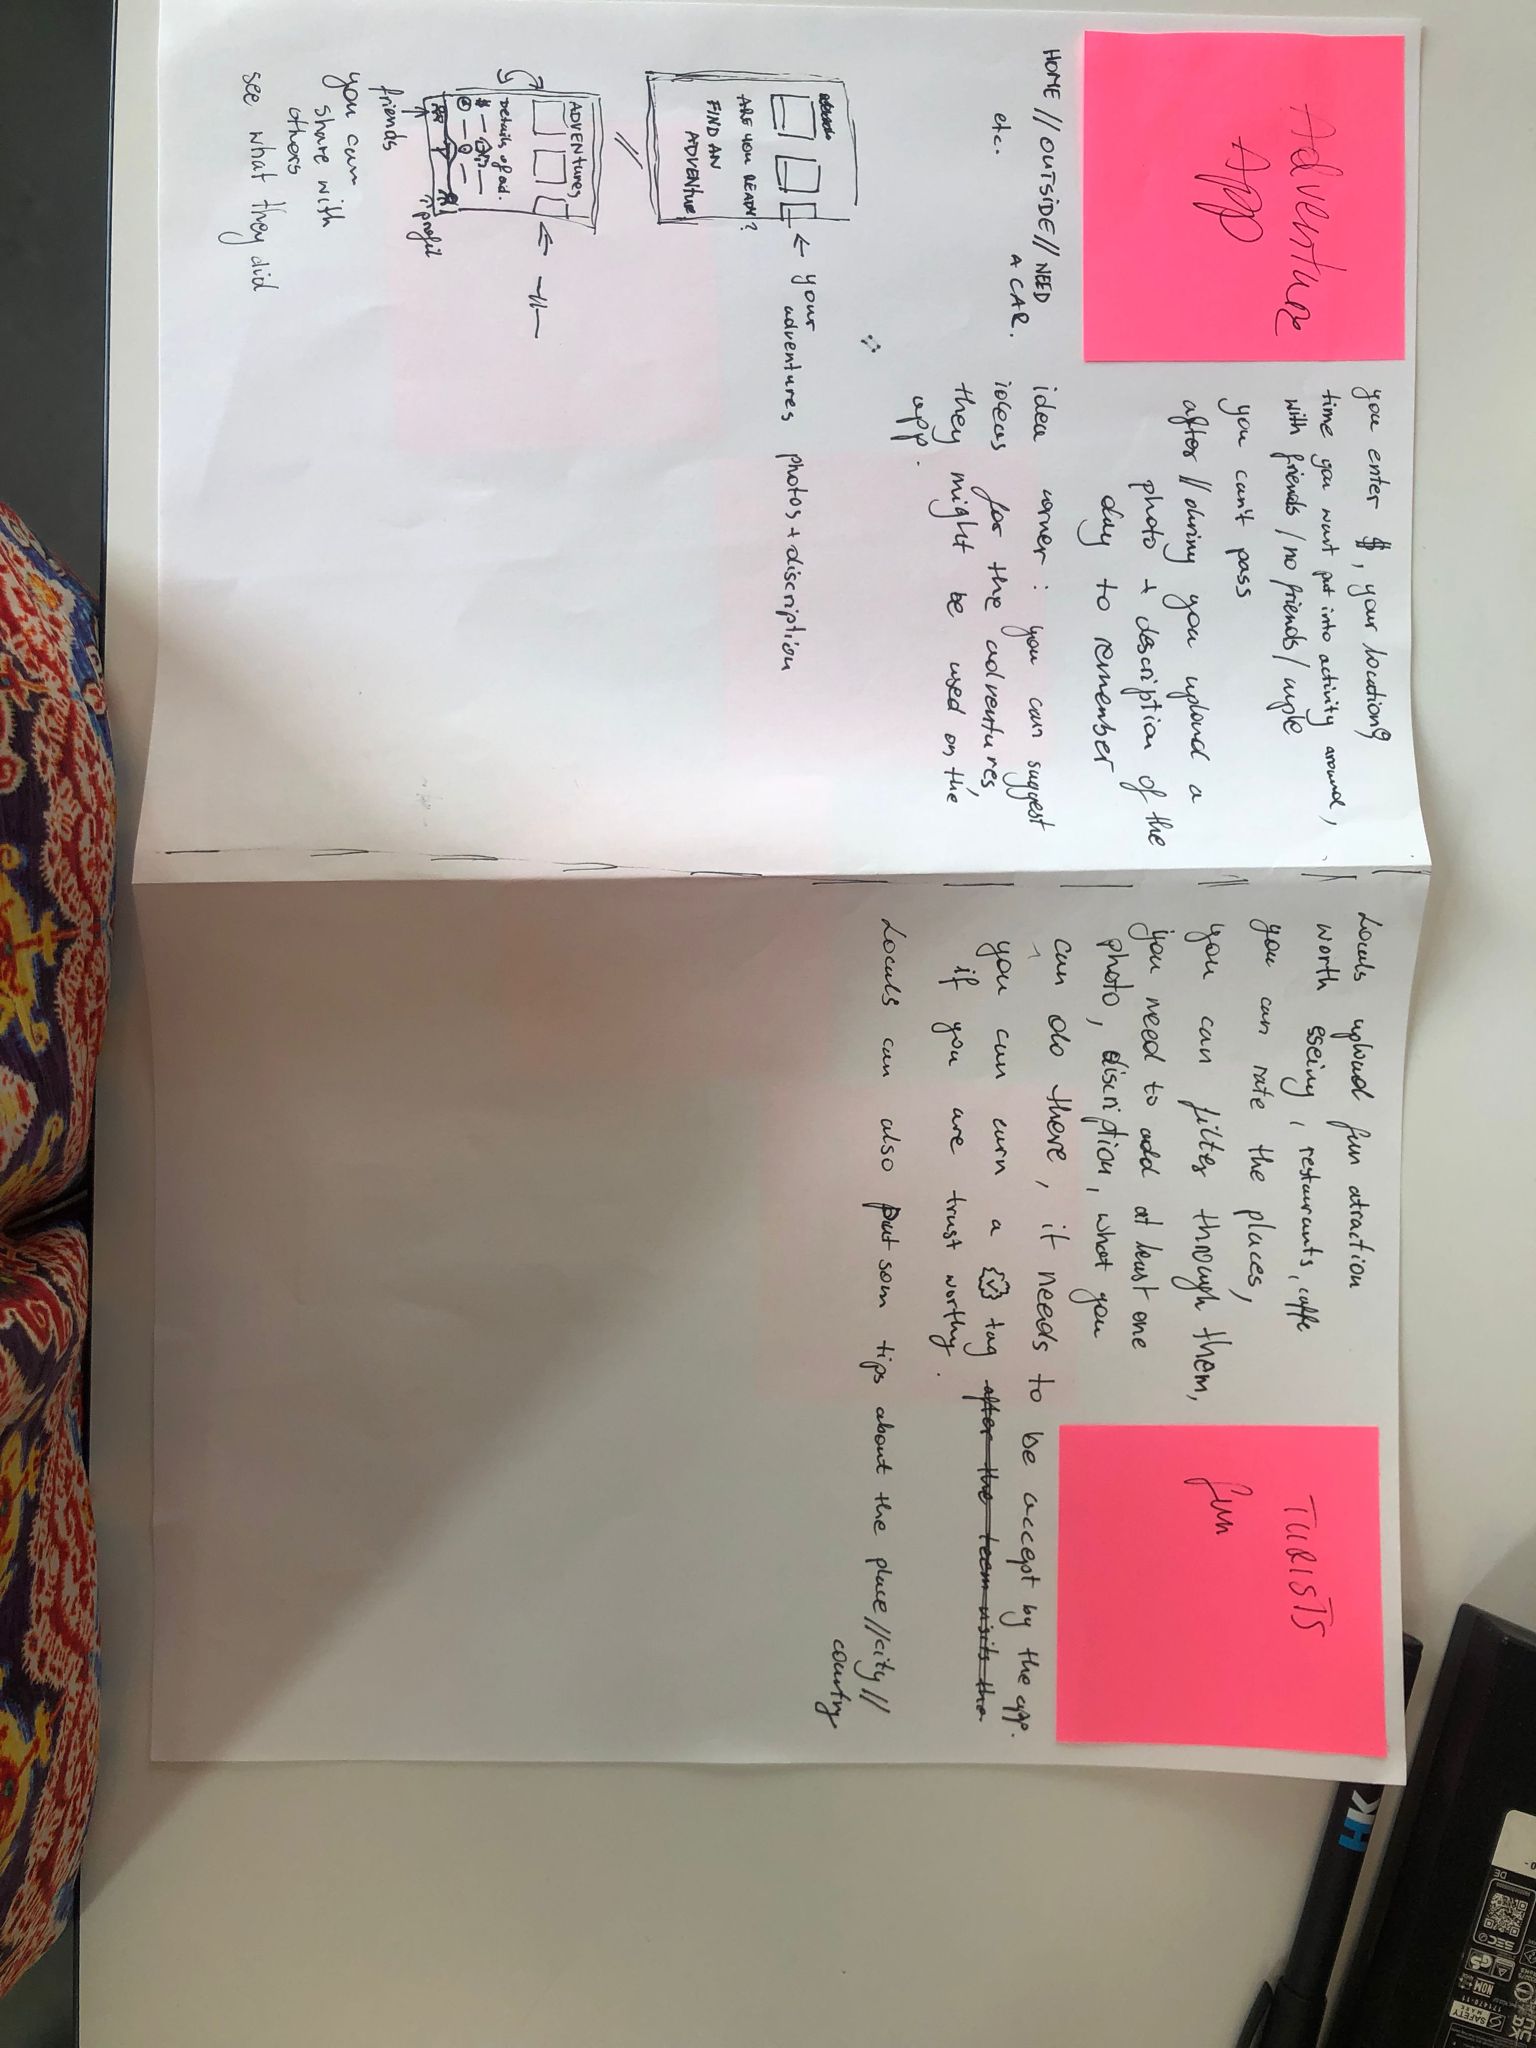 Adventure
App
you enter $, your location,
time you want put into activity around,
with friends / no friends / cuple
you can't pass
after // during you upload a
photo + description of the
day to remember
HOME // OUTSIDE // NEED
A CAR.
etc.
idea corner : you can suggest
ideas for the adventures,
they might be used on the
app.
ARE YOU READY?
FIND AN
ADVENTURE
← your
adventures photos + discription
//
ADVENTURES
Details of ad.
$
← —//—
friends
profil
you can
share with
others
see what they did
Locals upload fun atraction
worth sseing, restaurants, caffe
you can rate the places,
you can filter through them,
you need to add at least one
photo, discription, what you
can do there, it needs to be accept by the app.
you can earn a tag after the team visits the
if you are trust worthy.
Locals can also put som tips about the place // city //
country
TURISTS
fun
HK
DE
SEC
NOM
171479-11
SAFETY
MARK
UK
CA